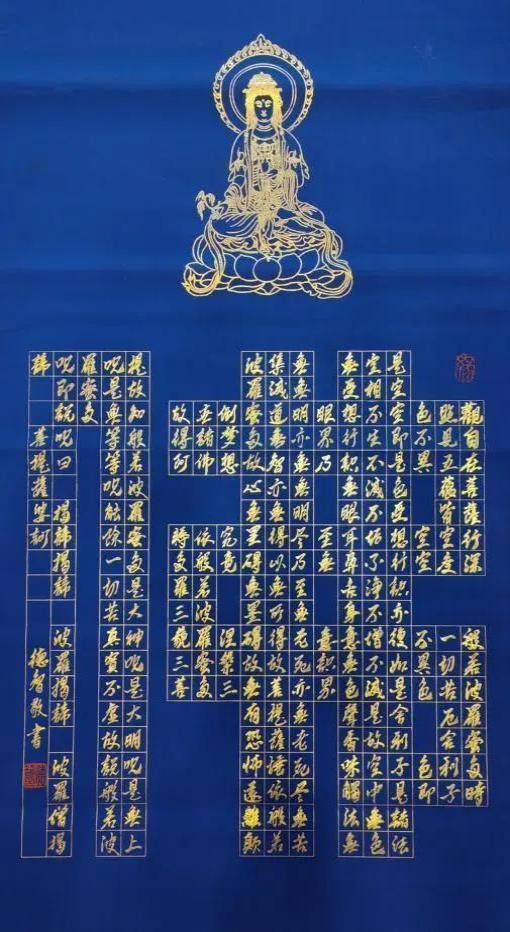 觀自在菩薩行深般若波羅蜜多時
照見五蘊皆空度一切苦厄舍利子
色不異空空不異色色即
是空空即是色受想行識亦復如是舍利子是諸法
空相不生不滅不垢不淨不增不減是故空中無色
無受想行識無眼耳鼻舌身意無色聲香味觸法無
眼界乃至無意識界
無無明亦無無明盡乃至無老死亦無老死盡無苦
集滅道無智亦無得以無所得故菩提薩埵依般若
波羅蜜多故心無罣礙無罣礙故無有恐怖遠離顛
倒夢想究竟涅槃三
世諸佛依般若波羅蜜多
故得阿耨多羅三藐三菩
提故知般若波羅蜜多是大神呪是大明呪是無上
呪是無等等呪能除一切苦真實不虛故說般若波
羅蜜多
呪即說呪曰 揭諦揭諦 波羅揭諦 波羅僧揭
諦 菩提薩婆訶
德智敬書